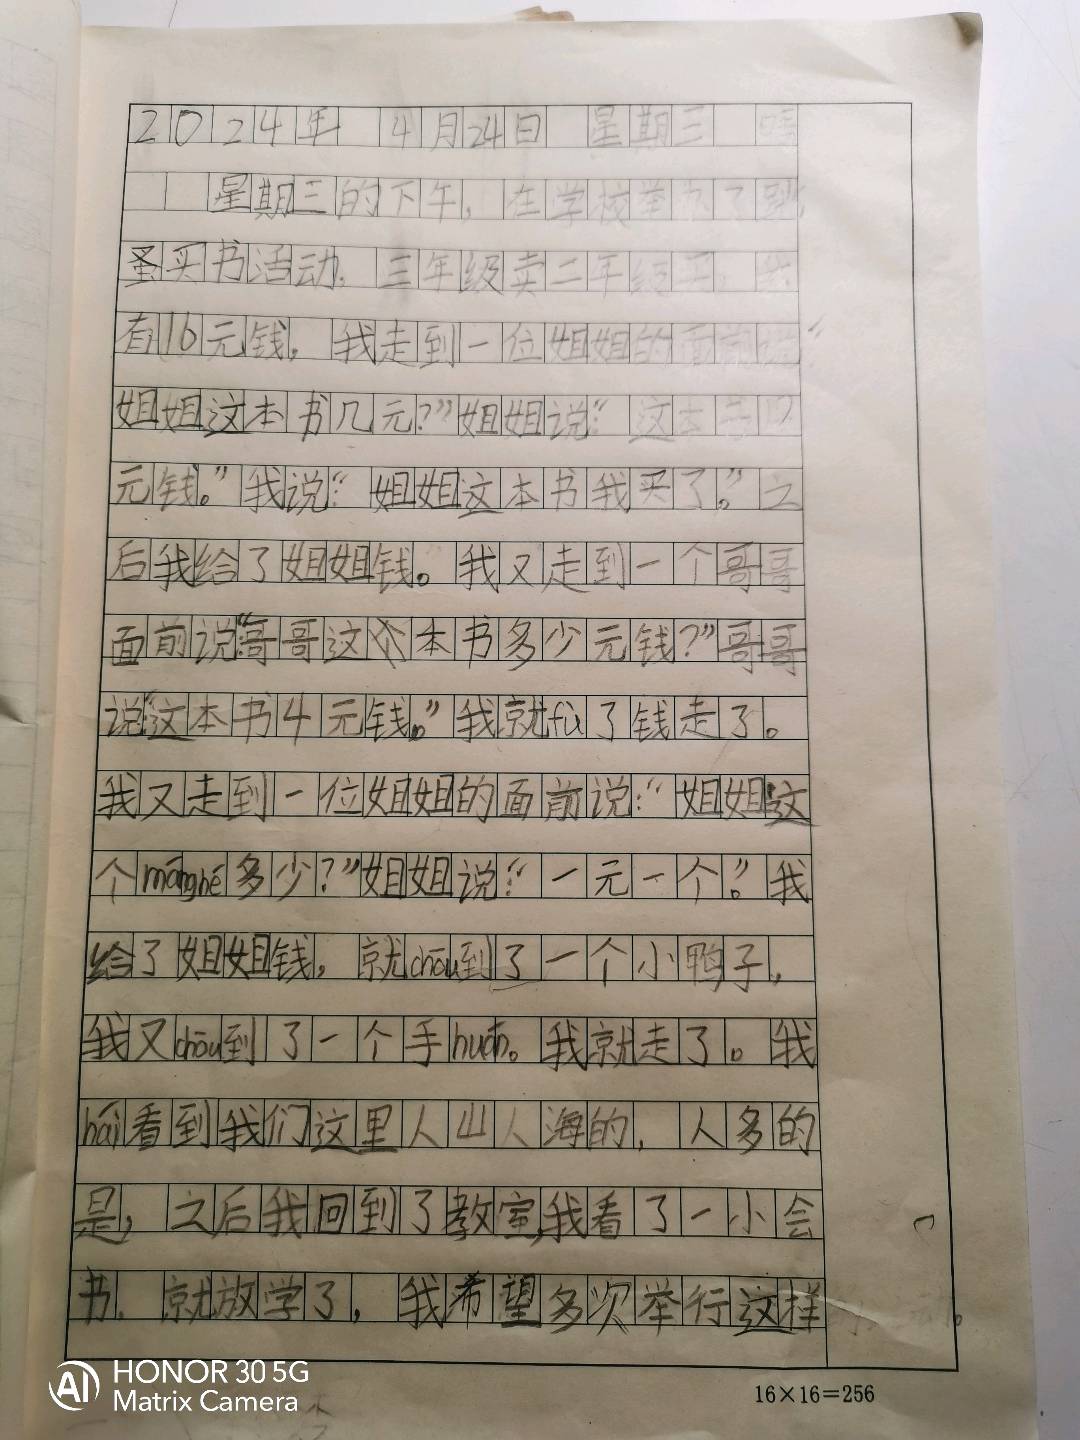 2024年 4月24日 星期三 晴
星期三的下午，在学校举办了跳
蚤买书活动，三年级卖二年级买，我
有16元钱，我走到一位姐姐的面前说“
姐姐这本书几元？”姐姐说：“这本书10
元钱。”我说：“姐姐这本书我买了。”之
后我给了姐姐钱。我又走到一个哥哥
面前说“哥哥这本书多少元钱？”哥哥
说“这本书4元钱。”我就fù了钱走了。
我又走到一位姐姐的面前说：“姐姐这
个mánghé多少？”姐姐说：“一元一个。”我
给了姐姐钱，就chōu到了一个小鸭子，
我又chōu到了一个手huán。我就走了。我
hái看到我们这里人山人海的，人多的
是，之后我回到了教室，我看了一小会
书，就放学了，我希望多次举行这样
16×16=256
HONOR 30 5G
Matrix Camera